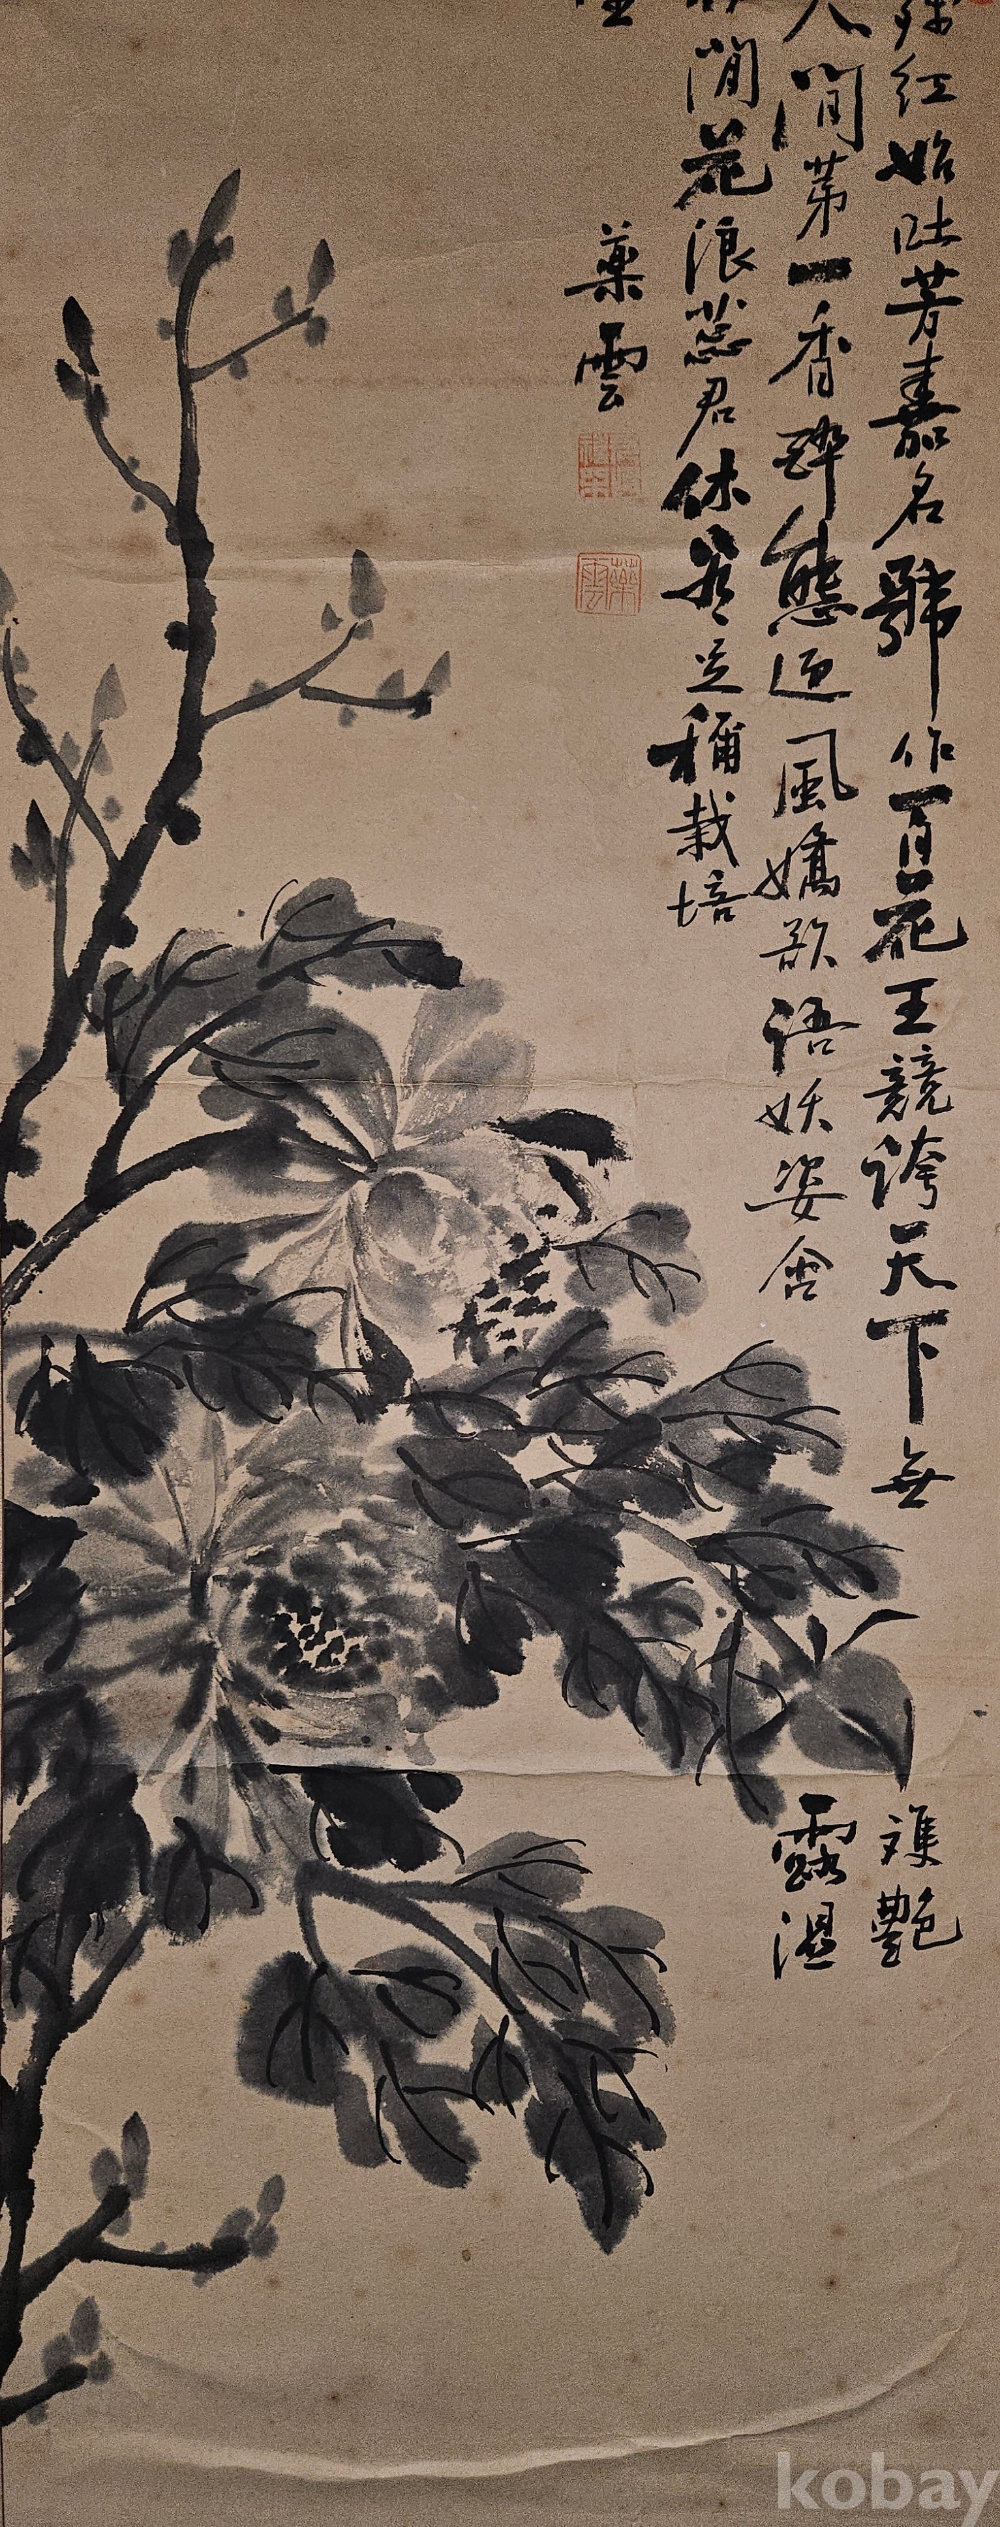 殘紅始吐芳嘉名號作百花王競誇天下無雙艶
人間第一香醉態迎風嬌欲語妖姿含露湿
閒花浪蕊君休栽培
藥雲
藥雲
kobay